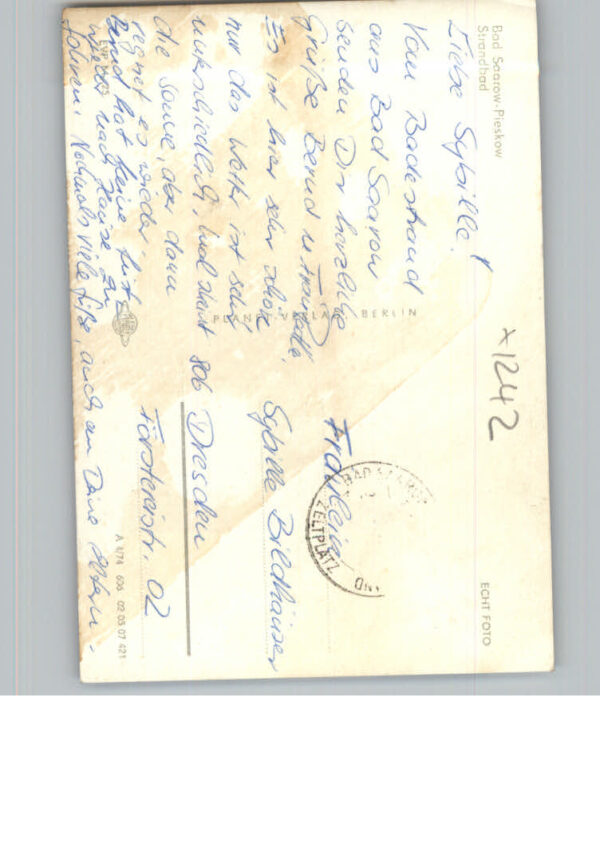 Bad Saarow-Pieskow
Strandbad
Liebe Sybille!
Vom Badestrand
aus Bad Saarow
senden Dir herzliche
Grüße Bernd u.
Es ist hier sehr schön
nur das Wetter ist sehr
unterschiedlich, mal scheint
die Sonne, aber dann
regnet es wieder.
Bernd hat keine Lust
wieder nach Hause zu
fahren. Nochmals viele Grüße, auch an Deine Eltern.
EVP
PLANET-VERLAG BERLIN
x1242
ECHT FOTO
BAD SAAROW
ZELTPLATZ
Fräulein
Sybille Bildhäuser
806 Dresden
Förstereistr. 02
A 1/74 606 02 05 07 421